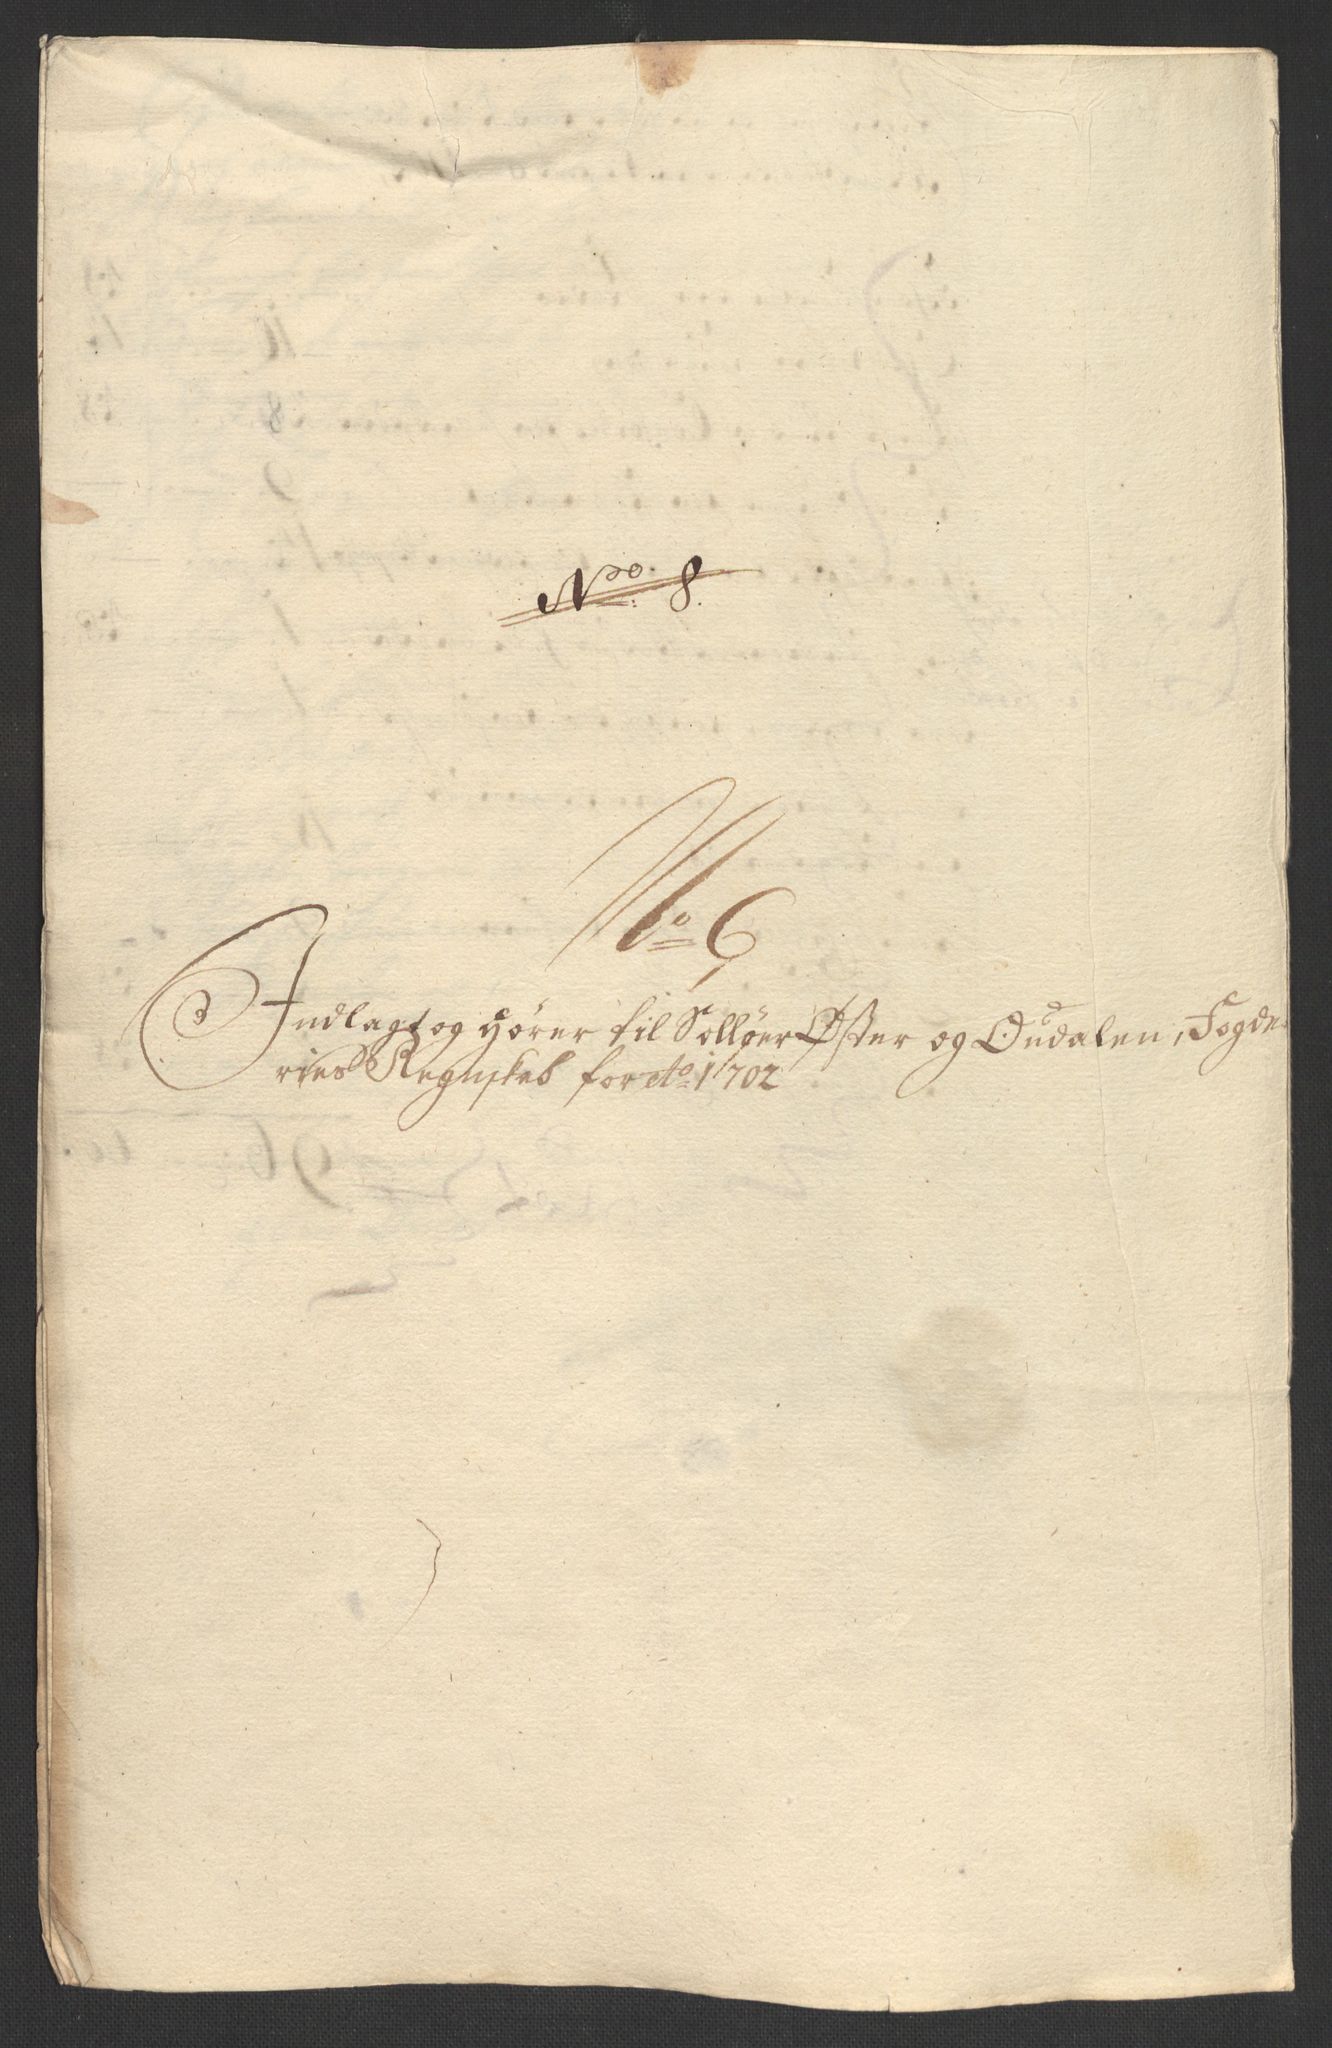 No. 8.
No 6
Indlagt og hører til Solløer Øster og Oudalen, Fogde-
ries Regnskab for Ao 1702